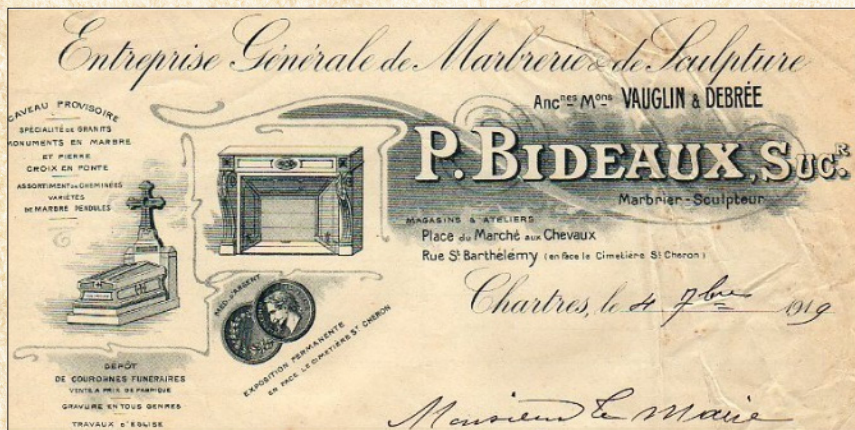 Entreprise Générale de Marbrerie & de Sculpture
Anc.nes M.ons VAUGLIN & DEBRÉE
P. BIDEAUX, SUC.R
Marbrier-Sculpteur
MAGASINS & ATELIERS
Place du Marché aux Chevaux
Rue St Barthélemy (en face le Cimetière St Cheron)
CAVEAU PROVISOIRE
SPÉCIALITÉ DE GRANITS
MONUMENTS EN MARBRE
ET PIERRE
CROIX EN FONTE
ASSORTIMENT DE CHEMINÉES
VARIÉTÉS
DE MARBRE PENDULES
MED. D'ARGENT
EXPOSITION PERMANENTE
EN FACE LE CIMETIÈRE ST CHERON
DÉPÔT
DE COURONNES FUNÉRAIRES
VENTE A PRIX DE FABRIQUE
GRAVURE EN TOUS GENRES
TRAVAUX D'EGLISE
Chartres, le 4 7bre 1919
Monsieur le Maire